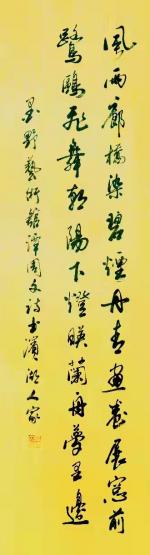 風雨廊橋染碧煙丹青畫卷展窓前
鷺鷗飛舞朝陽下燈暎蘭舟夢里邊
星野藝術館譚國文詩書瀟湖人家